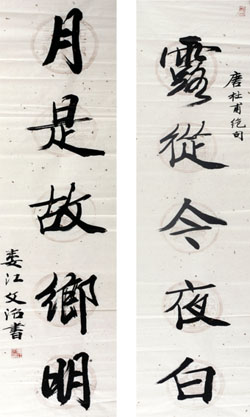 唐杜甫绝句
露從今夜白
月是故鄉明
婁江文治書